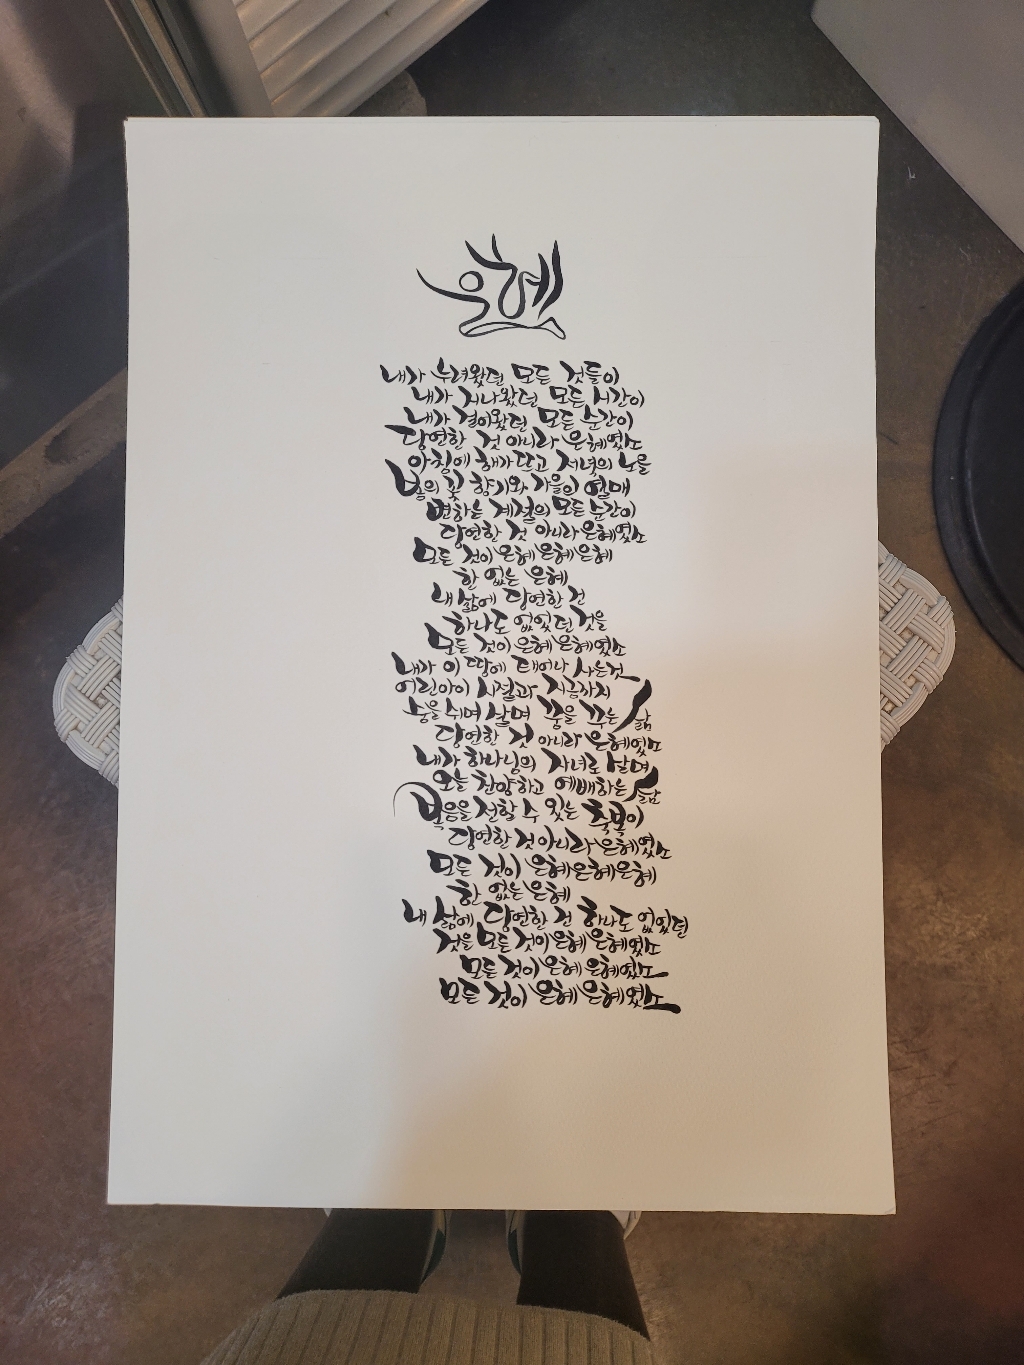 은혜
내가 누려왔던 모든 것들이
내가 지나왔던 모든 시간이
내가 걸어왔던 모든 순간이
당연한 것 아니라 은혜였소
아침에 해가 뜨고 저녁의 노을
봄의 꽃 향기와 가을의 열매
변하는 계절의 모든 순간이
당연한 것 아니라 은혜였소
모든 것이 은혜 은혜 은혜
한 없는 은혜
내 삶에 당연한 건
하나도 없었던 것을
모든 것이 은혜 은혜였소
내가 이 땅에 태어나 사는 것
어린아이 시절과 지금까지
숨을 쉬며 살며 꿈을 꾸는 삶
당연한 것 아니라 은혜였소
내가 하나님의 자녀로 살며
오늘 찬양하고 예배하는 삶
복음을 전할 수 있는 축복이
당연한 것 아니라 은혜였소
모든 것이 은혜 은혜 은혜
한 없는 은혜
내 삶에 당연한 건 하나도 없었던
것을 모든 것이 은혜 은혜였소
모든 것이 은혜 은혜였소
모든 것이 은혜 은혜였소